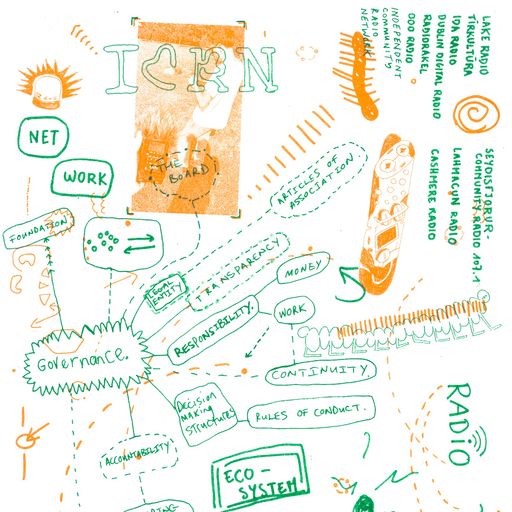 ICRN
LAKE RADIO
TIRKULTÜRA
IDA RADIO
DUBLIN DIGITAL RADIO
RADIORAKEL
ODO RADIO
INDEPENDENT
COMMUNITY
RADIO
NETWORK
SEYDISFJORUR
COMMUNITY RADIO 107.1
LAHMACUN RADIO
CASHMERE RADIO
NET
WORK
THE
BOARD
ARTICLES OF
ASSOCIATION
FOUNDATION
LEGAL
ENTITY
TRANSPARENCY
MONEY
RESPONSIBILITY
WORK
Governance.
CONTINUITY
Decision
Making
Structures
RULES OF CONDUCT.
ACCOUNTABILITY
ECO-
SYSTEM
RADIO